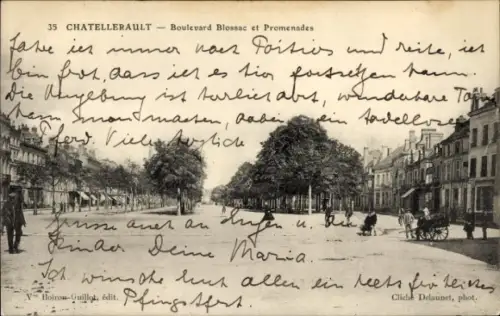 35 CHATELLERAULT — Boulevard Blossac et Promenades
Fahre ich immer nach Poitiers und reite, ich
bin froh, dass ich es hier fortsetzen kann.
Die Umgebung ist herrlich, wunderbare
kann man machen, dabei ein tadelloses
Pferd, Viele herzliche
Grüsse auch an u. die
Kinder Deine Maria.
Ich wünsche euch allen ein recht fröhliches
Pfingstfest
Vve Boiron-Guillot, édit.
Cliché Delaunet, phot.